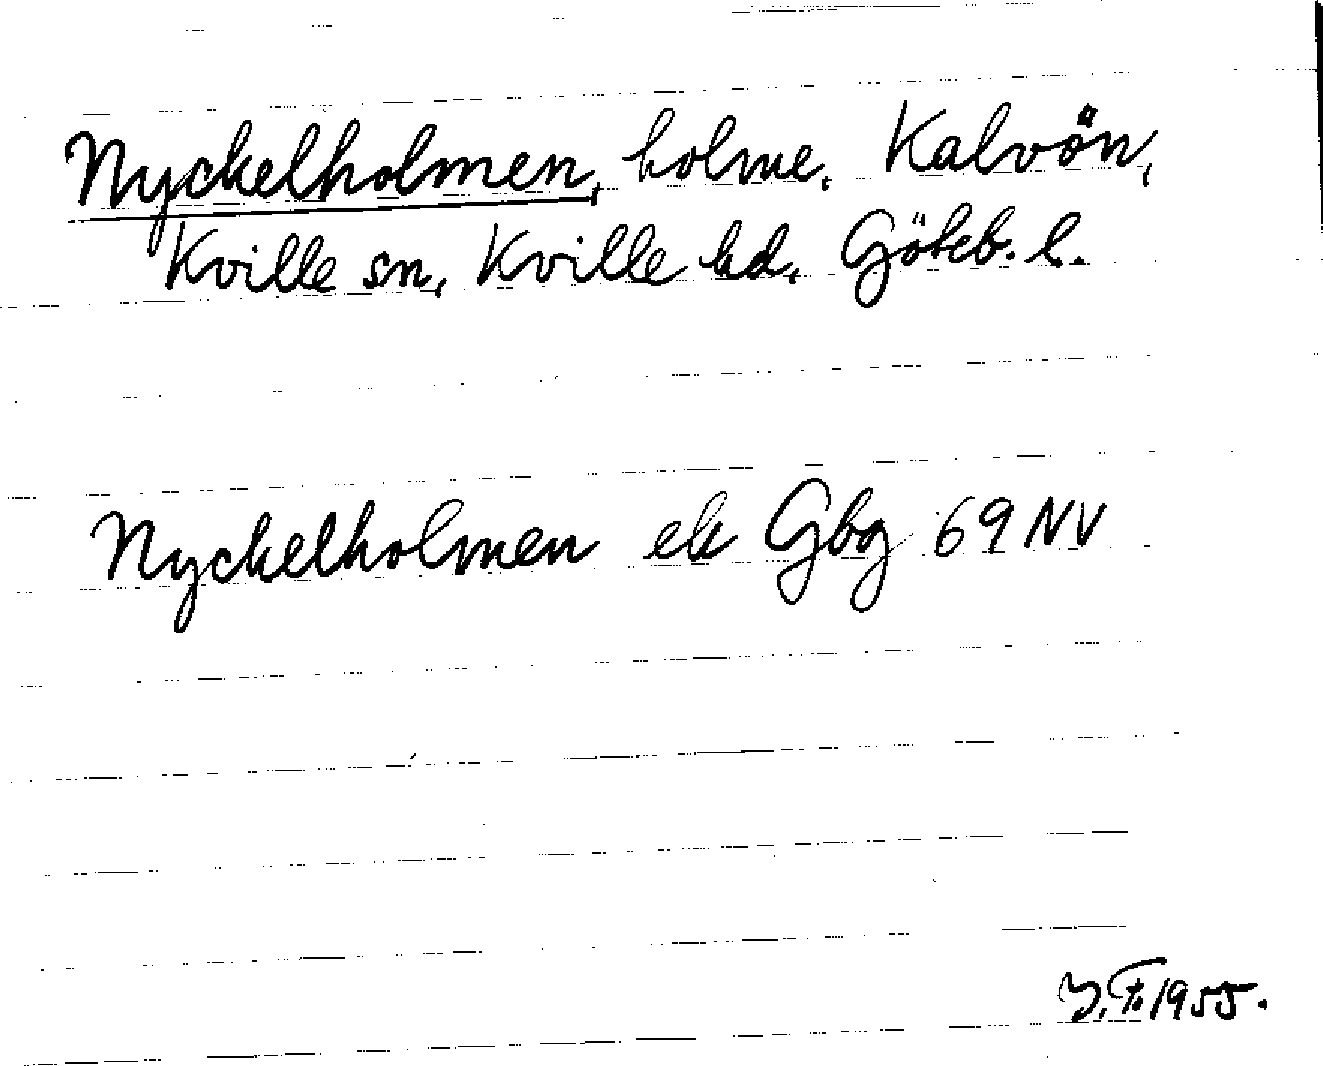 Nyckelholmen, holme, Kalvön,
Kville sn, Kville hd, Göteb. l.
Nyckelholmen ek Gbg 69 NV
1955.